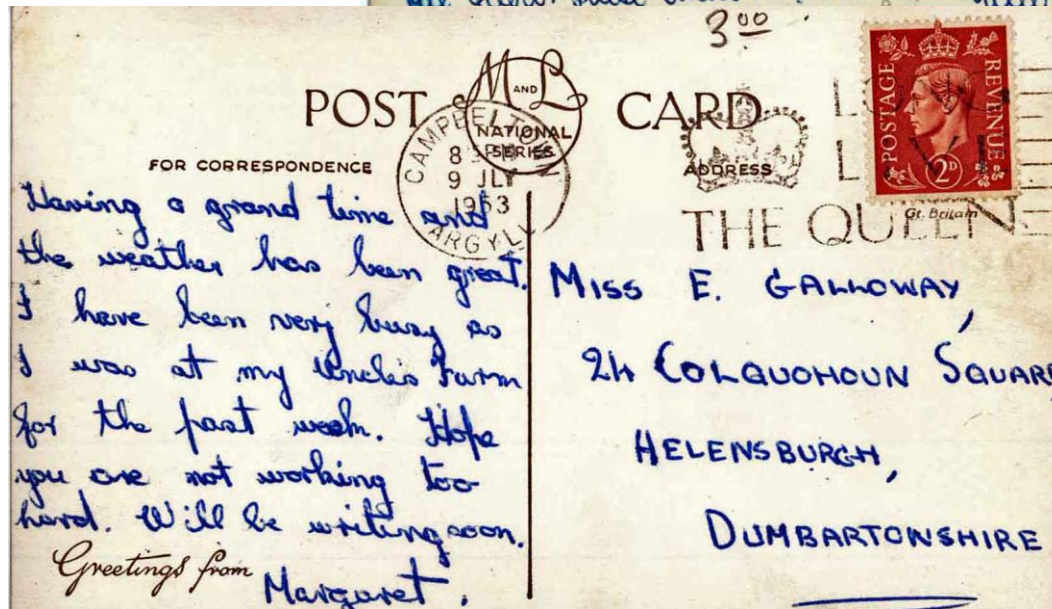 3 00
POST CARD
M AND L
NATIONAL
SERIES
FOR CORRESPONDENCE
ADDRESS
CAMPBELTOWN
9 JLY
1953
ARGYLL
THE QUEEN
POSTAGE REVENUE
2D
Gt. Britain
Having a grand time and
the weather has been great.
I have been very busy as
I was at my Uncle's Farm
for the past week. Hope
you are not working too
hard. Will be writing soon.
Greetings from
Margaret.
MISS E. GALLOWAY,
24 COLQUOHOUN SQUARE
HELENSBURGH,
DUMBARTONSHIRE